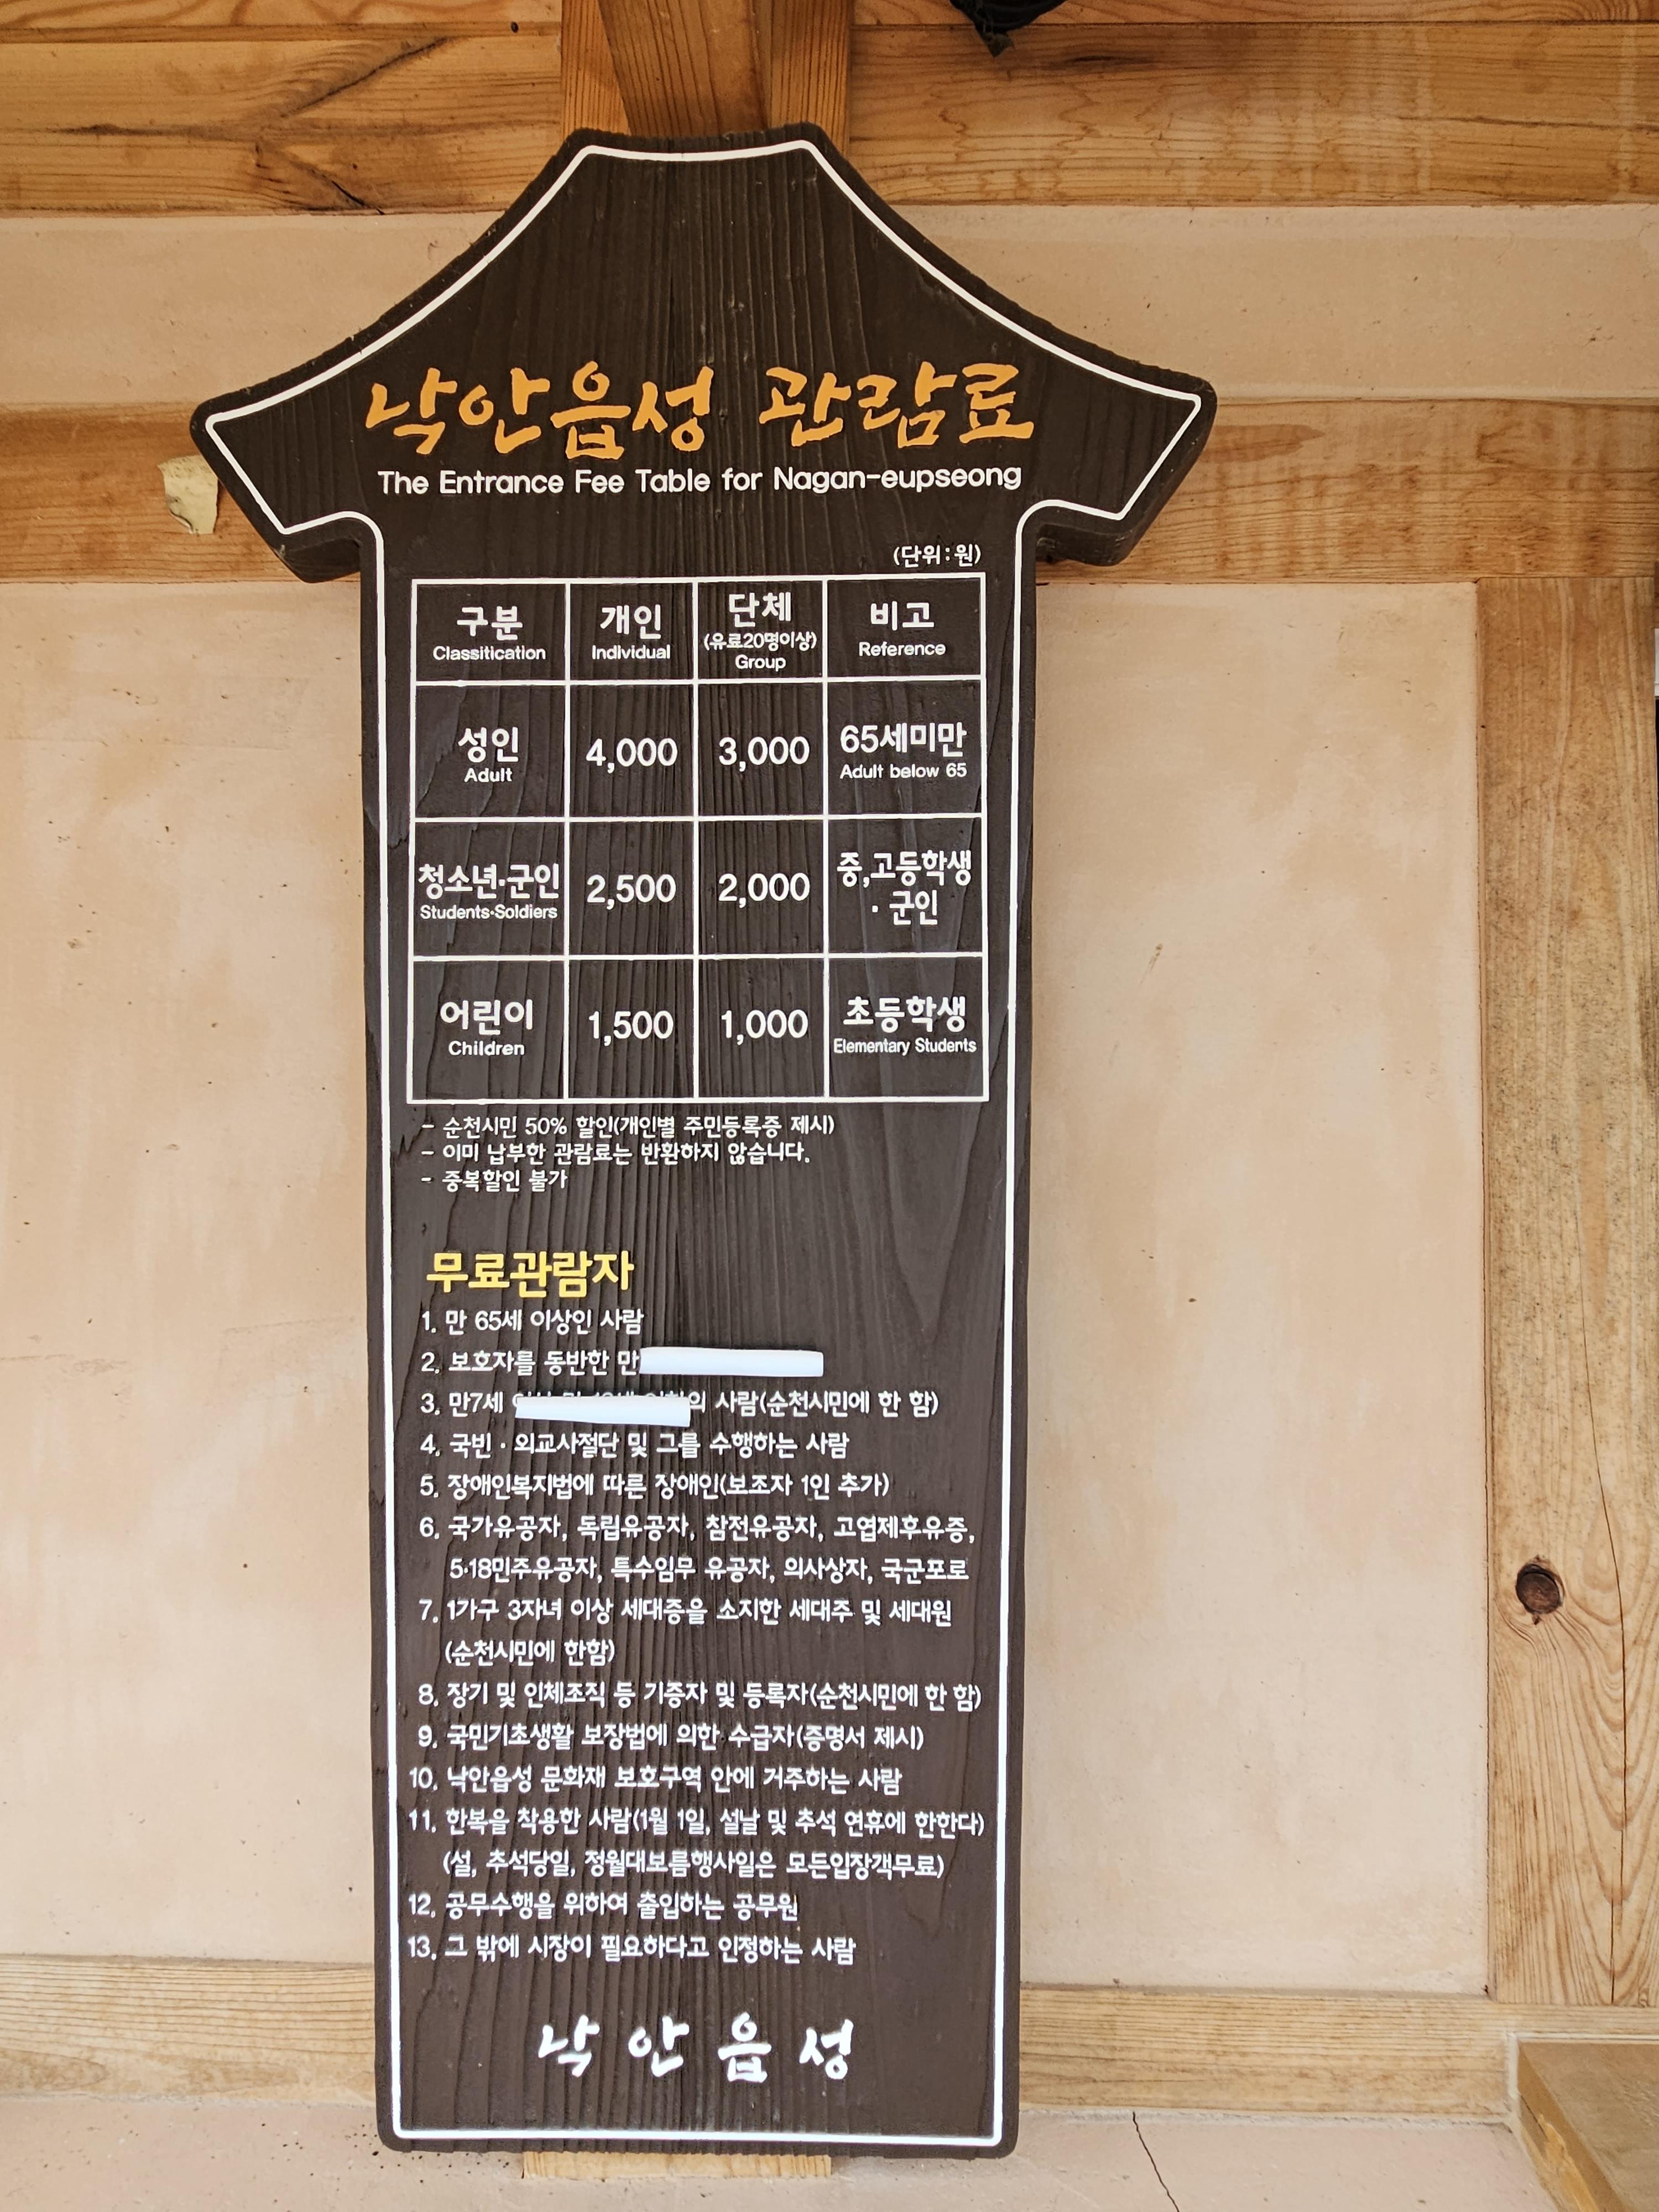 낙안읍성 관람료
The Entrance Fee Table for Nagan-eupseong
(단위:원)
구분 개인 단체 비고
(유료20명이상)
Classitication Individual Group Reference
성인 4,000 3,000 65세미만
Adult Adult below 65
청소년·군인 2,500 2,000 중,고등학생
Students·Soldiers · 군인
어린이 1,500 1,000 초등학생
Children Elementary Students
- 순천시민 50% 할인(개인별 주민등록증 제시)
- 이미 납부한 관람료는 반환하지 않습니다.
- 중복할인 불가
무료관람자
1. 만 65세 이상인 사람
2. 보호자를 동반한 만
3. 만7세 의 사람(순천시민에 한 함)
4. 국빈·외교사절단 및 그를 수행하는 사람
5. 장애인복지법에 따른 장애인(보조자 1인 추가)
6. 국가유공자, 독립유공자, 참전유공자, 고엽제후유증,
5·18민주유공자, 특수임무 유공자, 의사상자, 국군포로
7. 1가구 3자녀 이상 세대증을 소지한 세대주 및 세대원
(순천시민에 한함)
8. 장기 및 인체조직 등 기증자 및 등록자(순천시민에 한 함)
9. 국민기초생활 보장법에 의한 수급자(증명서 제시)
10. 낙안읍성 문화재 보호구역 안에 거주하는 사람
11. 한복을 착용한 사람(1월 1일, 설날 및 추석 연휴에 한한다)
(설, 추석당일, 정월대보름행사일은 모든입장객무료)
12. 공무수행을 위하여 출입하는 공무원
13. 그 밖에 시장이 필요하다고 인정하는 사람
낙안읍성